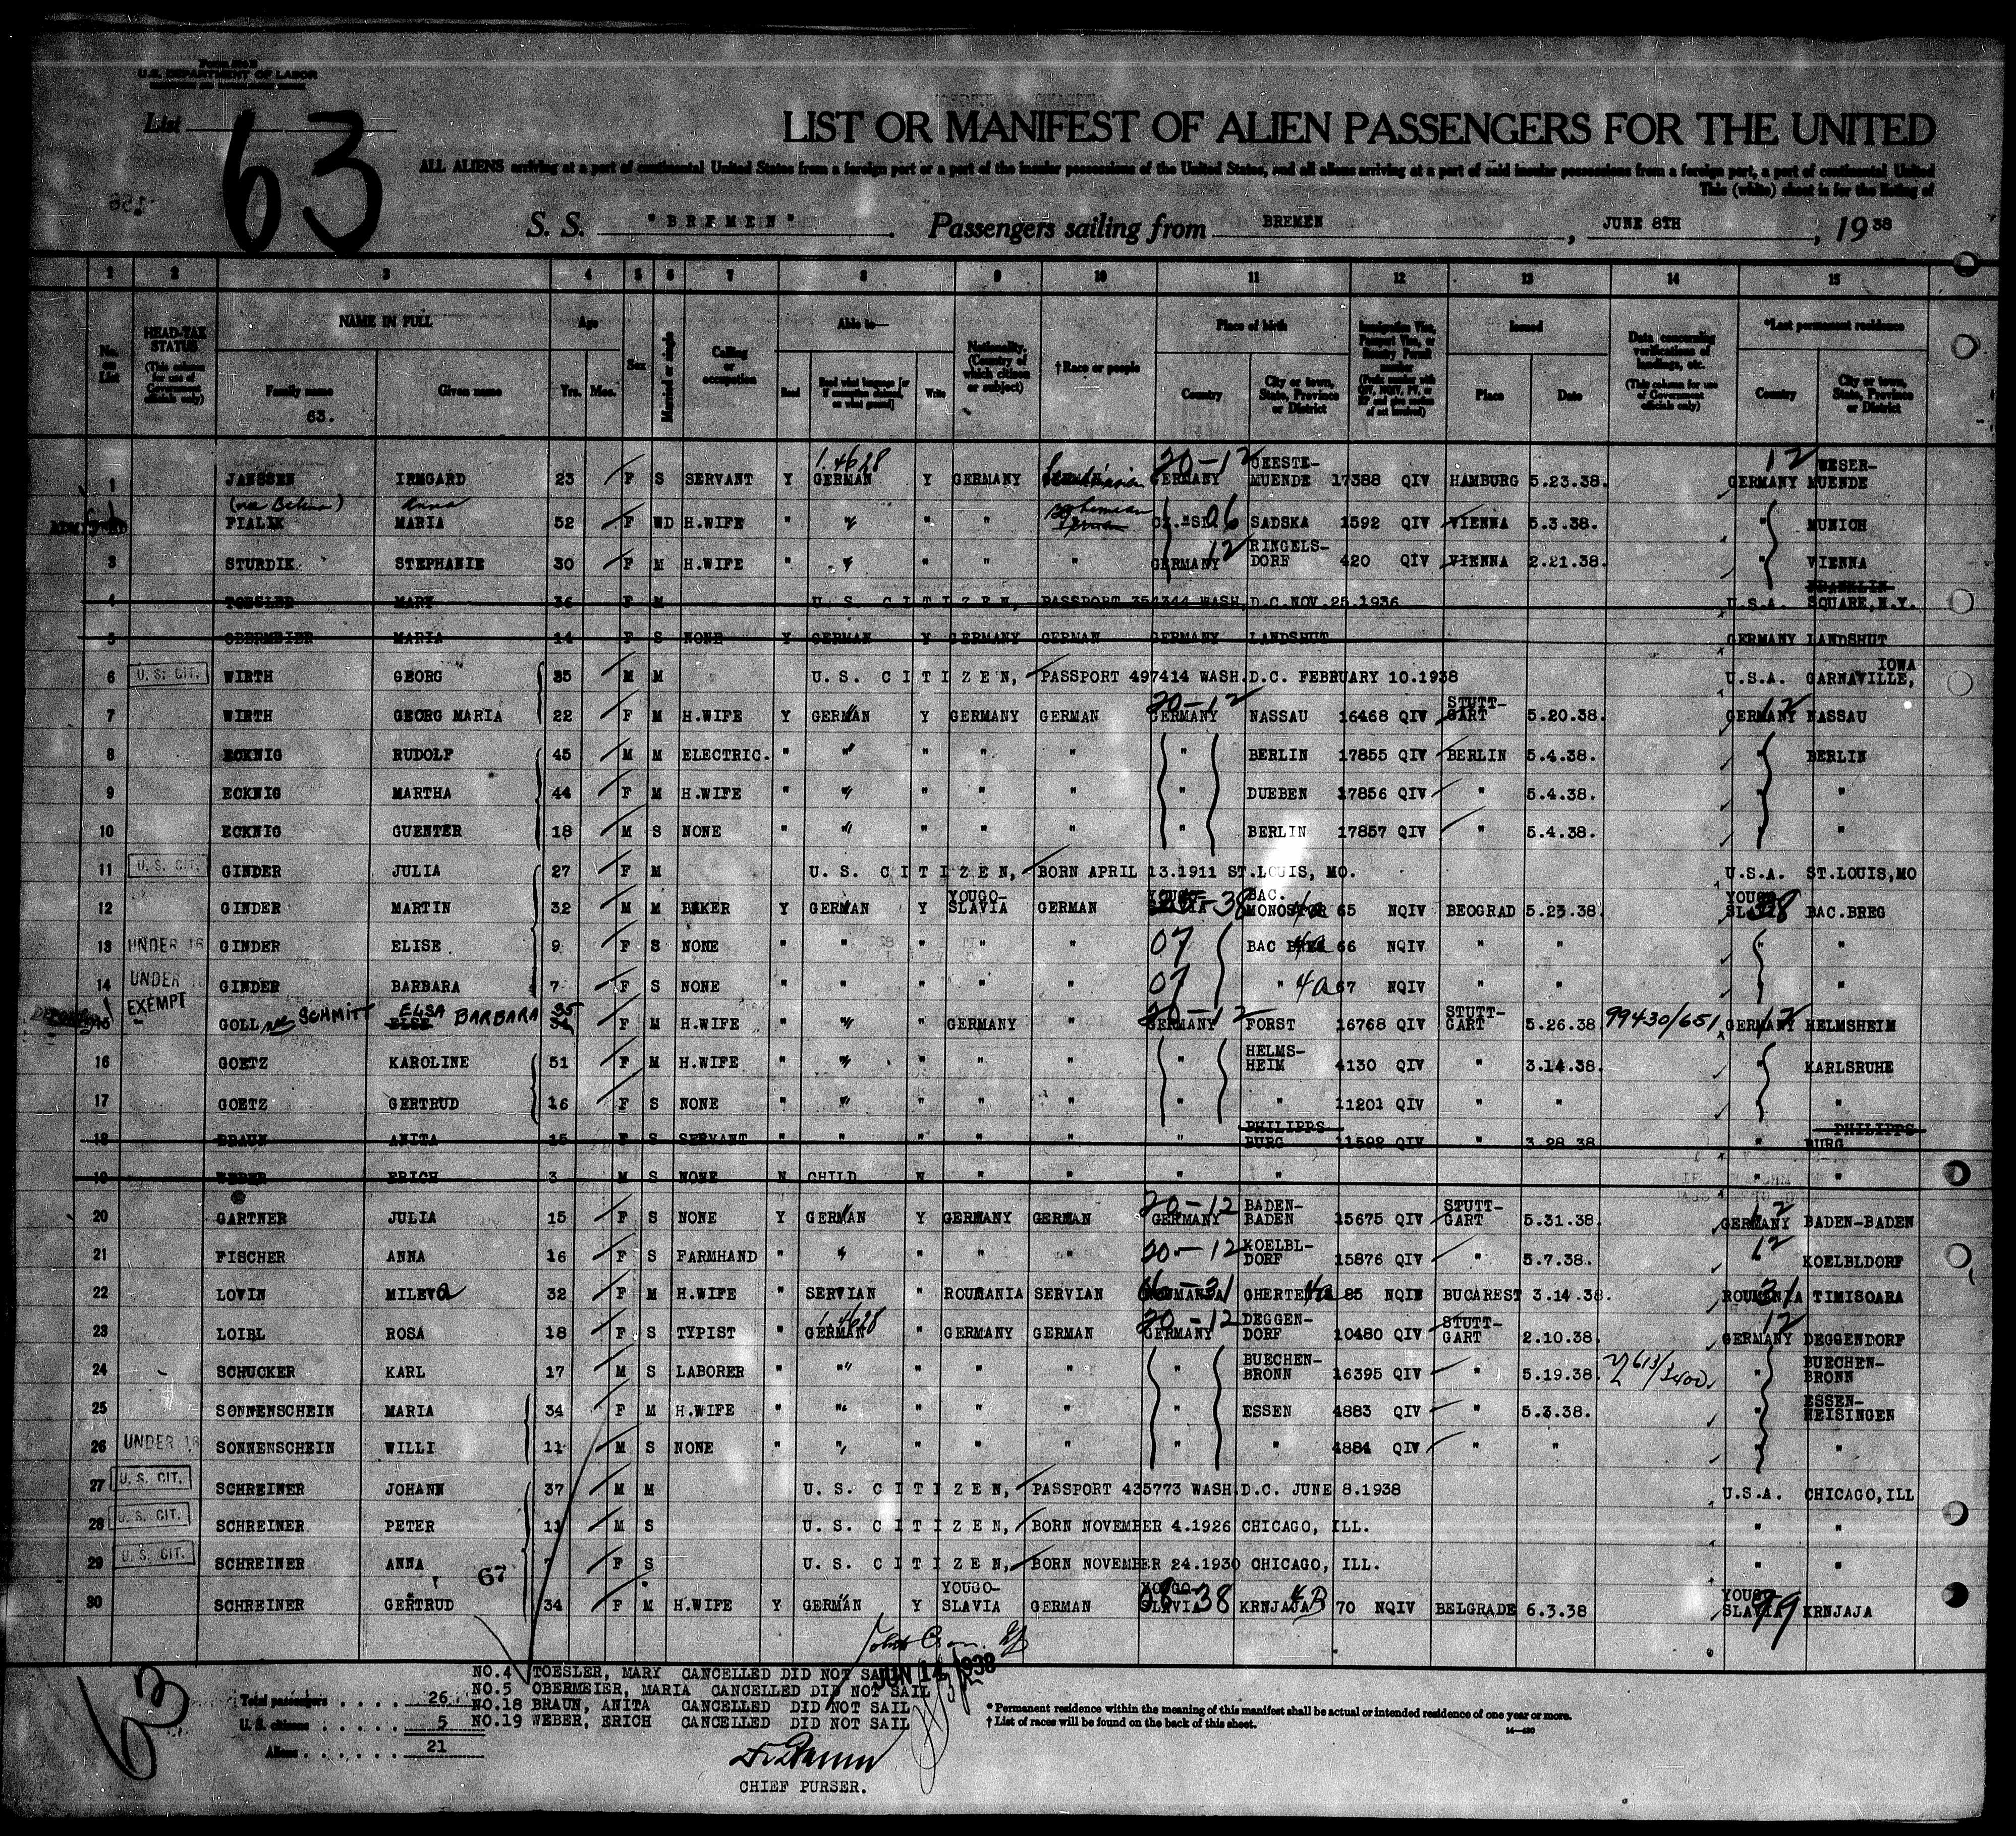 Form 500 B
U.S. DEPARTMENT OF LABOR
List 63
LIST OR MANIFEST OF ALIEN PASSENGERS FOR THE UNITED
ALL ALIENS arriving at a port of continental United States from a foreign port or a port of the insular possessions of the United States, and all aliens arriving at a port of said insular possessions from a foreign port, a port of continental United
This (white) sheet is for the listing of
S. S. "BREMEN". Passengers sailing from BREMEN, JUNE 8TH, 1938
1 2 3 4 5 6 7 8 9 10 11 12 13 14 15
No. on List
HEAD-TAX STATUS (This column for use of Government officials only)
NAME IN FULL Family name 63. Given name
Age Yrs. Mos.
Sex
Married or single
Calling or occupation
Able to— Read Read what language [or if exemption claimed, on what ground] Write
Nationality, (Country of which citizen or subject)
†Race or people
Place of birth Country City or town, State, Province or District
Immigration Visa, Passport Visa, or Reentry Permit number
Issued Place Date
Data concerning verifications of landings, etc. (This column for use of Government officials only)
*Last permanent residence Country City or town, State, Province or District
1 JANSSEN IRMGARD 23 F S SERVANT Y GERMAN 1.4628 Y GERMANY GERMANY 20-12 GEESTE-MUENDE 17388 QIV HAMBURG 5.23.38. GERMANY 12 WESER-MUENDE
ADMITTED FIALIK MARIA Anna 52 F WD H.WIFE " " " " Bohemian 06 SADSKA 1592 QIV VIENNA 5.3.38. " MUNICH
3 STURDIK STEPHANIE 30 F M H.WIFE " " " " " GERMANY 12 RINGELS-DORF 420 QIV VIENNA 2.21.38. " VIENNA
4 TOESLER MARY 36 F M U. S. CITIZEN, PASSPORT 354344 WASH.D.C.NOV.25.1936 U.S.A. FRANKLIN SQUARE,N.Y.
5 OBERMEIER MARIA 14 F S NONE Y GERMAN Y GERMANY GERMAN GERMANY LANDSHUT GERMANY LANDSHUT
6 U. S. CIT. WIRTH GEORG 35 M M U. S. CITIZEN, PASSPORT 497414 WASH.D.C. FEBRUARY 10.1938 U.S.A. GARNAVILLE, IOWA
7 WIRTH GEORG MARIA 22 F M H.WIFE Y GERMAN Y GERMANY GERMAN GERMANY 20-12 NASSAU 16468 QIV STUTT-GART 5.20.38. GERMANY 12 NASSAU
8 ECKNIG RUDOLF 45 M M ELECTRIC. " " " " " " BERLIN 17855 QIV BERLIN 5.4.38. BERLIN
9 ECKNIG MARTHA 44 F M H.WIFE " " " " " " DUEBEN 17856 QIV " 5.4.38. " "
10 ECKNIG GUENTER 18 M S NONE " " " " " " BERLIN 17857 QIV " 5.4.38. " "
11 U. S. CIT. GINDER JULIA 27 F M U. S. CITIZEN, BORN APRIL 13.1911 ST.LOUIS, MO. U.S.A. ST.LOUIS,MO
12 GINDER MARTIN 32 M M BAKER Y GERMAN Y YOUGO-SLAVIA GERMAN YOUGO-SLAVIA 38 BAC. MONOSTOR 65 NQIV BEOGRAD 5.23.38. YOUGO-SLAVIA 38 BAC.BREG
13 UNDER 16 GINDER ELISE 9 F S NONE " " " " " 07 BAC BREG 4a 66 NQIV " " " "
14 UNDER 16 GINDER BARBARA 7 F S NONE " " " " " 07 " 4a 67 NQIV " " " "
15 EXEMPT GOLL née SCHMITT ELSE ELSA BARBARA 35 F M H.WIFE " " " GERMANY " GERMANY 20-12 FORST 16768 QIV STUTT-GART 5.26.38. 99430/651 GERMANY 12 HELMSHEIM
16 GOETZ KAROLINE 51 F M H.WIFE " " " " " " HELMS-HEIM 4130 QIV " 3.14.38. KARLSRUHE
17 GOETZ GERTRUD 16 F S NONE " " " " " " " 11201 QIV " " " "
18 BRAUN ANITA 15 F S SERVANT " " " " " " PHILIPPS-BURG 11592 QIV " 3.28.38 " PHILIPPS-BURG
19 WEBER ERICH 3 M S NONE N CHILD N " " " " " "
20 GARTNER JULIA 15 F S NONE Y GERMAN Y GERMANY GERMAN GERMANY 20-12 BADEN-BADEN 15675 QIV STUTT-GART 5.31.38. GERMANY 12 BADEN-BADEN
21 FISCHER ANNA 16 F S FARMHAND " " " " " 20-12 KOELBL-DORF 15876 QIV " 5.7.38. 12 KOELBLDORF
22 LOVIN MILEVa 32 F M H.WIFE " SERVIAN " ROUMANIA SERVIAN ROUMANIA 06-31 4a 85 NQIV BUCAREST 3.14.38. ROUMANIA 31 TIMISOARA
23 LOIBL ROSA 18 F S TYPIST " GERMAN 1.4628 " GERMANY GERMAN GERMANY 20-12 DEGGEN-DORF 10480 QIV STUTT-GART 2.10.38. GERMANY 12 DEGGENDORF
24 SCHUCKER KARL 17 M S LABORER " " " " " " BUECHEN-BRONN 16395 QIV " 5.19.38. " BUECHEN-BRONN
25 SONNENSCHEIN MARIA 34 F M H.WIFE " " " " " " ESSEN 4883 QIV " 5.3.38. " ESSEN-HEISINGEN
26 UNDER 16 SONNENSCHEIN WILLI 11 M S NONE " " " " " " " 4884 QIV " " " "
27 U. S. CIT. SCHREINER JOHANN 37 M M U. S. CITIZEN, PASSPORT 435773 WASH.D.C. JUNE 8.1938 U.S.A. CHICAGO,ILL
28 U. S. CIT. SCHREINER PETER 11 M S U. S. CITIZEN, BORN NOVEMBER 4.1926 CHICAGO, ILL. " "
29 U. S. CIT. SCHREINER ANNA 7 F S U. S. CITIZEN, BORN NOVEMBER 24.1930 CHICAGO, ILL. " "
67
30 SCHREINER GERTRUD 34 F M H.WIFE Y GERMAN Y YOUGO-SLAVIA GERMAN YOUGO-SLAVIA 38 KRNJAJA 4B 70 NQIV BELGRADE 6.3.38 YOUGO-SLAVIA 99 KRNJAJA
63
NO.4 TOESLER, MARY CANCELLED DID NOT SAIL
JUN 14 1938
NO.5 OBERMEIER, MARIA CANCELLED DID NOT SAIL
NO.18 BRAUN, ANITA CANCELLED DID NOT SAIL
NO.19 WEBER, ERICH CANCELLED DID NOT SAIL
Total passengers . . . . 26
U. S. citizens . . . . . 5
Aliens . . . . . . 21
* Permanent residence within the meaning of this manifest shall be actual or intended residence of one year or more.
† List of races will be found on the back of this sheet.
CHIEF PURSER.